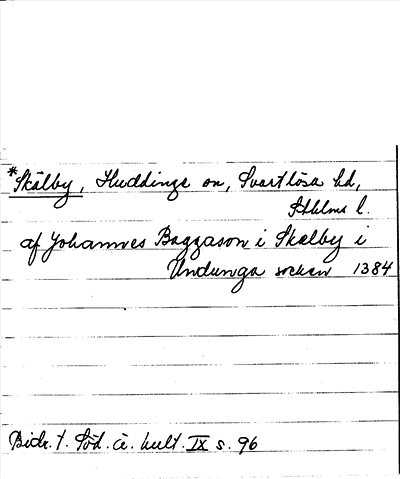 *Skälby, Huddinge sn, Svartlösa hd,
Sthlms l.
af Johannes Baggason i Skælby i
Undunga socken 1384
Bidr. t. Söd. ä. kult. IX s. 96